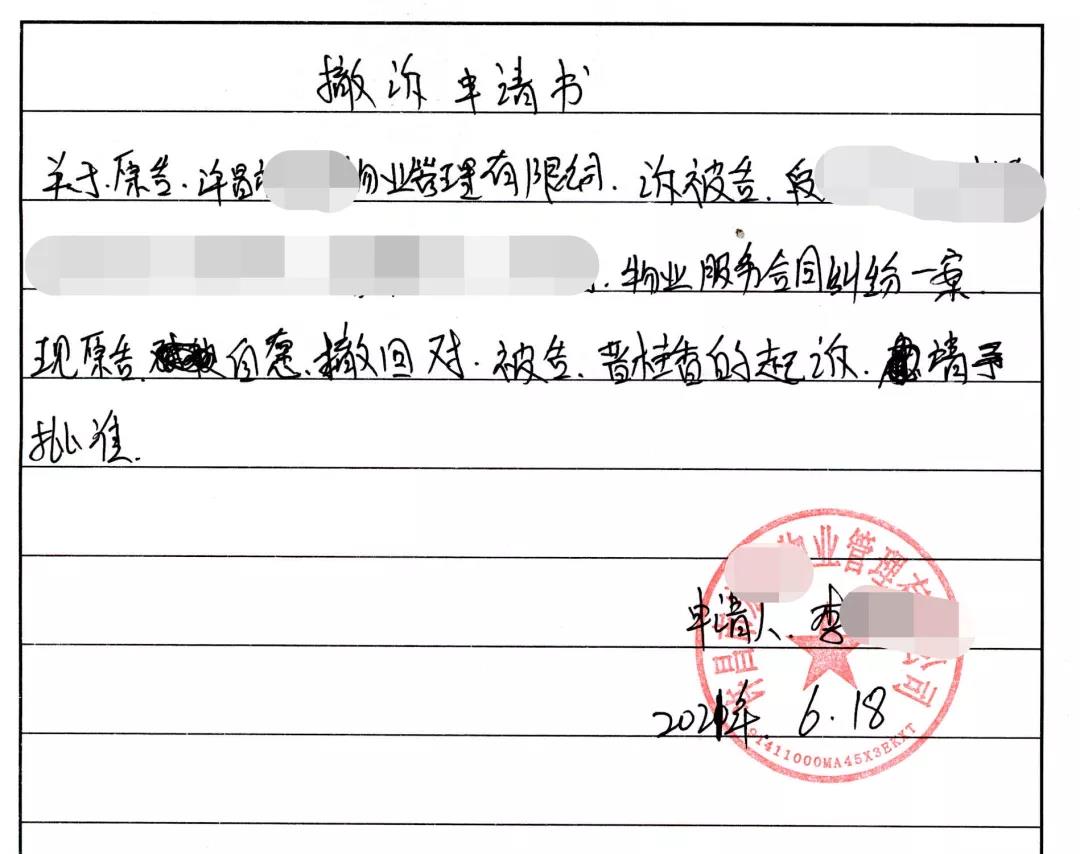 撤诉申请书
关于.原告.许昌 物业管理有限公司.诉被告.段
物业服务合同纠纷一案.
现原告 自愿、撤回对.被告. 的起诉. 请予
批准.
许昌 物业管理有 公司
申请人.李
2021年.6.18
91411000MA45X3EKXT